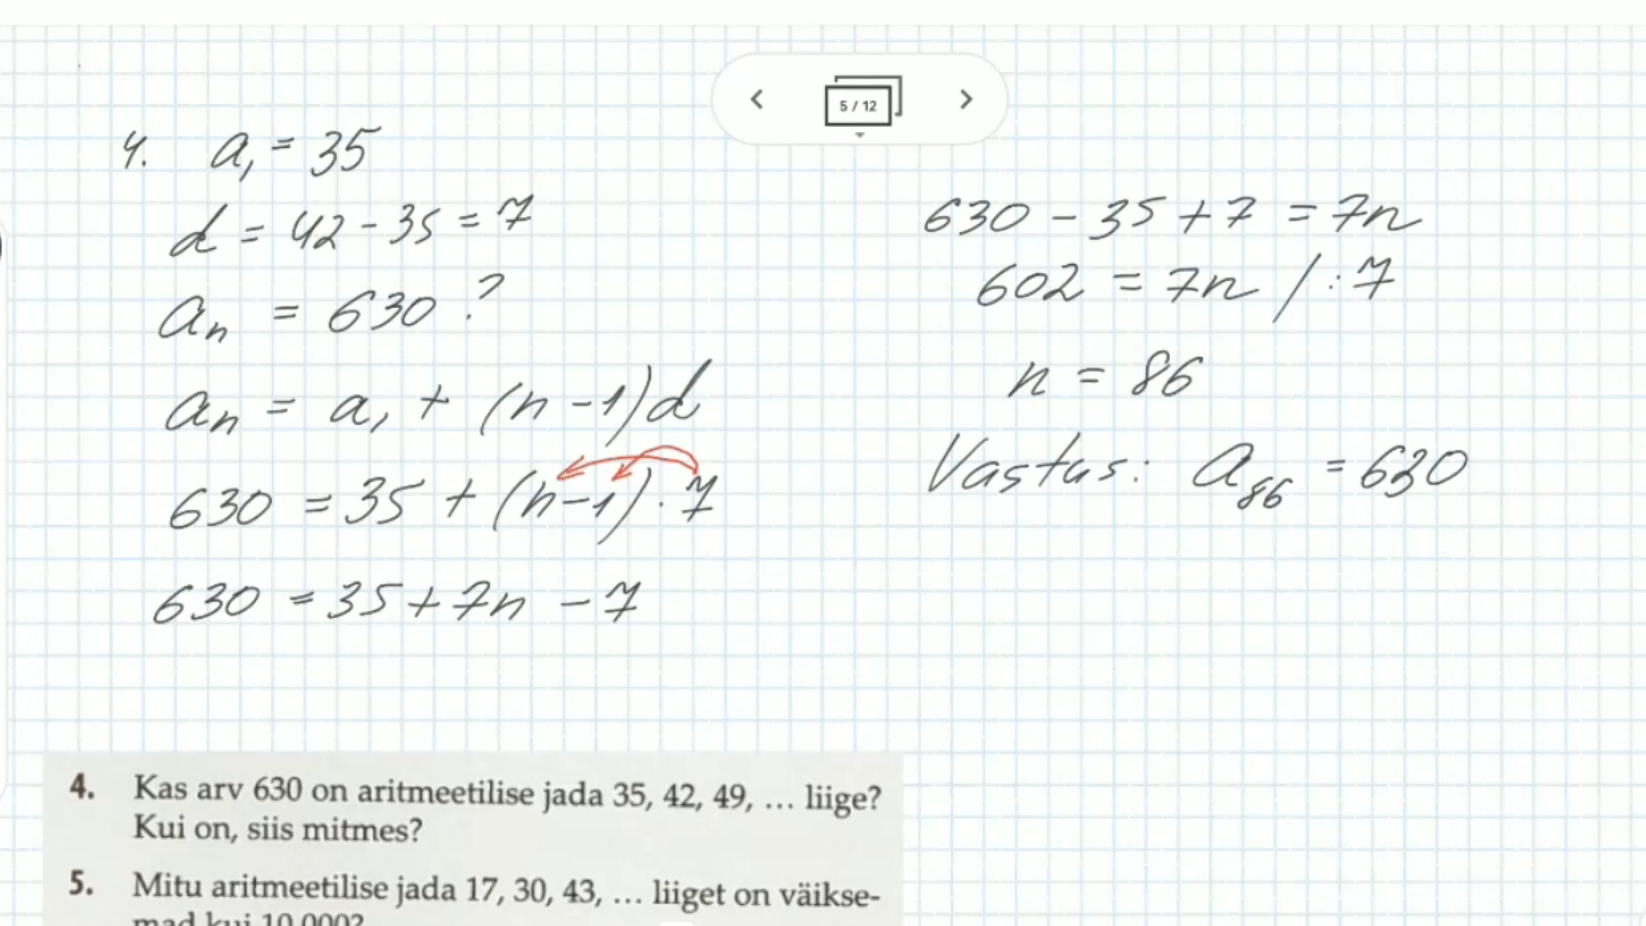 5 / 12
4. a₁ = 35
d = 42 - 35 = 7
aₙ = 630 ?
aₙ = a₁ + (n - 1)d
630 = 35 + (n - 1) · 7
630 = 35 + 7n - 7
630 - 35 + 7 = 7n
602 = 7n / : 7
n = 86
Vastus: a₈₆ = 630
4. Kas arv 630 on aritmeetilise jada 35, 42, 49, … liige?
Kui on, siis mitmes?
5. Mitu aritmeetilise jada 17, 30, 43, … liiget on väikse-
mad kui 10 000?